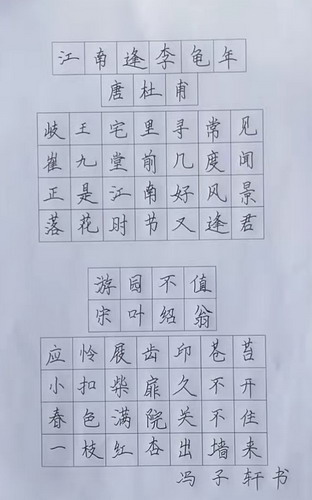 江南逢李龟年
唐杜甫
岐王宅里寻常见
崔九堂前几度闻
正是江南好风景
落花时节又逢君
游园不值
宋叶绍翁
应怜屐齿印苍苔
小扣柴扉久不开
春色满院关不住
一枝红杏出墙来
冯子轩书